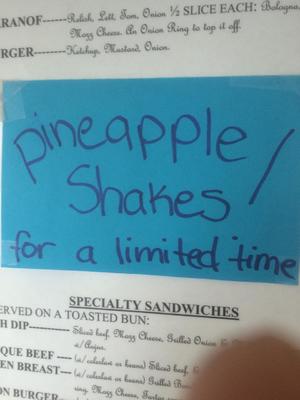 RANOF------Relish, Lett, Tom, Onion ½ SLICE EACH: Bologna,
Mozz Cheese. An Onion Ring to top it off.
RGER------Ketchup, Mustard, Onion.
pineapple/
Shakes
for a limited time
SPECIALTY SANDWICHES
ERVED ON A TOASTED BUN:
H DIP----------- Sliced beef, Mozz Cheese, Grilled Onion &
w/ Aujus.
QUE BEEF ---- (w/ coleslaw or beans) Sliced beef,
EN BREAST--- (w/ coleslaw or beans) Grilled
Mozz Cheese, Tartar
ON BURGER